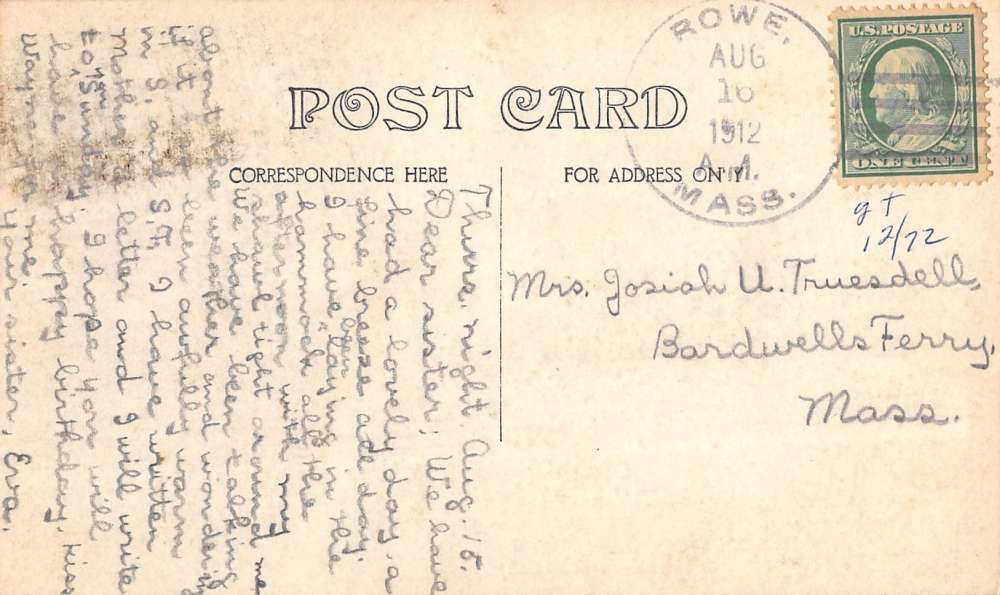 ROWE,
AUG
16
1912
A.M.
MASS.
U.S. POSTAGE
ONE CENT
POST CARD
CORRESPONDENCE HERE
FOR ADDRESS ONLY
g t
12/72
Mrs. Josiah U. Truesdell,
Bardwells Ferry,
Mass.
Thurs. night. Aug. 15.
Dear sister; We have
had a lovely day, a
fine breeze all day.
I have been laying in the
hammock all the
afternoon with my
shawl tight around me
We have been talking
about the weather and wondering
if it has been awfully warm
in S. and S.F. I have written
Mother a letter and I will write
to you Sunday. I hope you will
have a happy birthday. Kiss
Wayne for me.
Your sister, Eva.